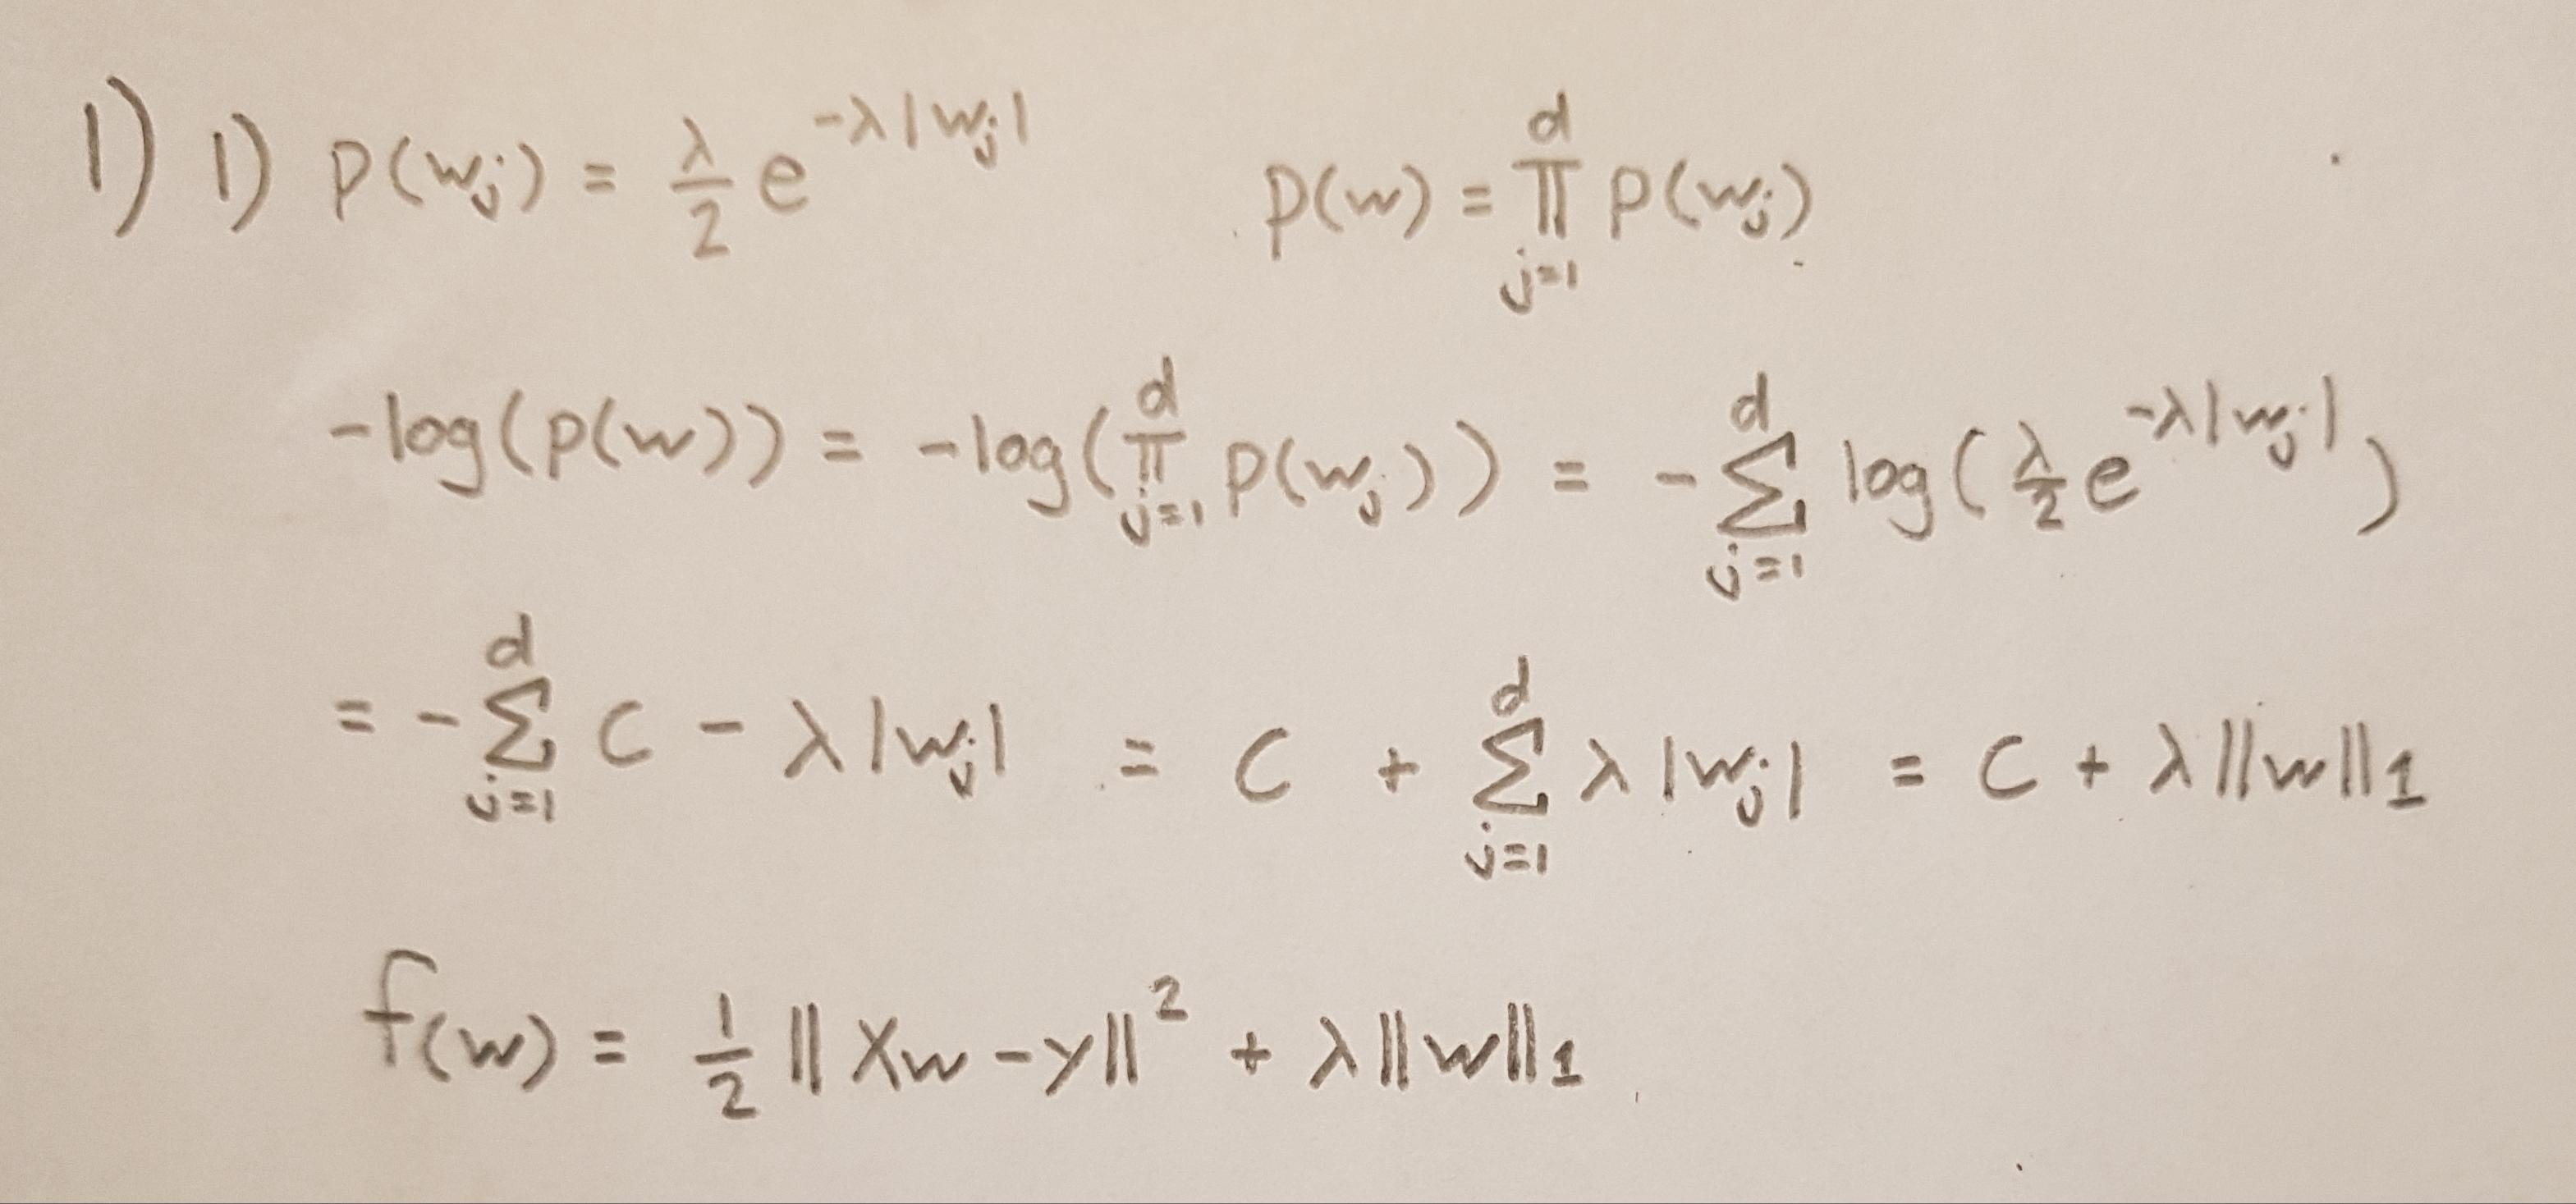 1) 1) p(w_j) = λ/2 e^{-λ|w_j|}    p(w) = ∏_{j=1}^{d} p(w_j)
-log(p(w)) = -log(∏_{j=1}^{d} p(w_j)) = -∑_{j=1}^{d} log(λ/2 e^{-λ|w_j|})
= -∑_{j=1}^{d} C - λ|w_j| = C + ∑_{j=1}^{d} λ|w_j| = C + λ||w||_1
f(w) = 1/2 ||Xw - y||^2 + λ||w||_1